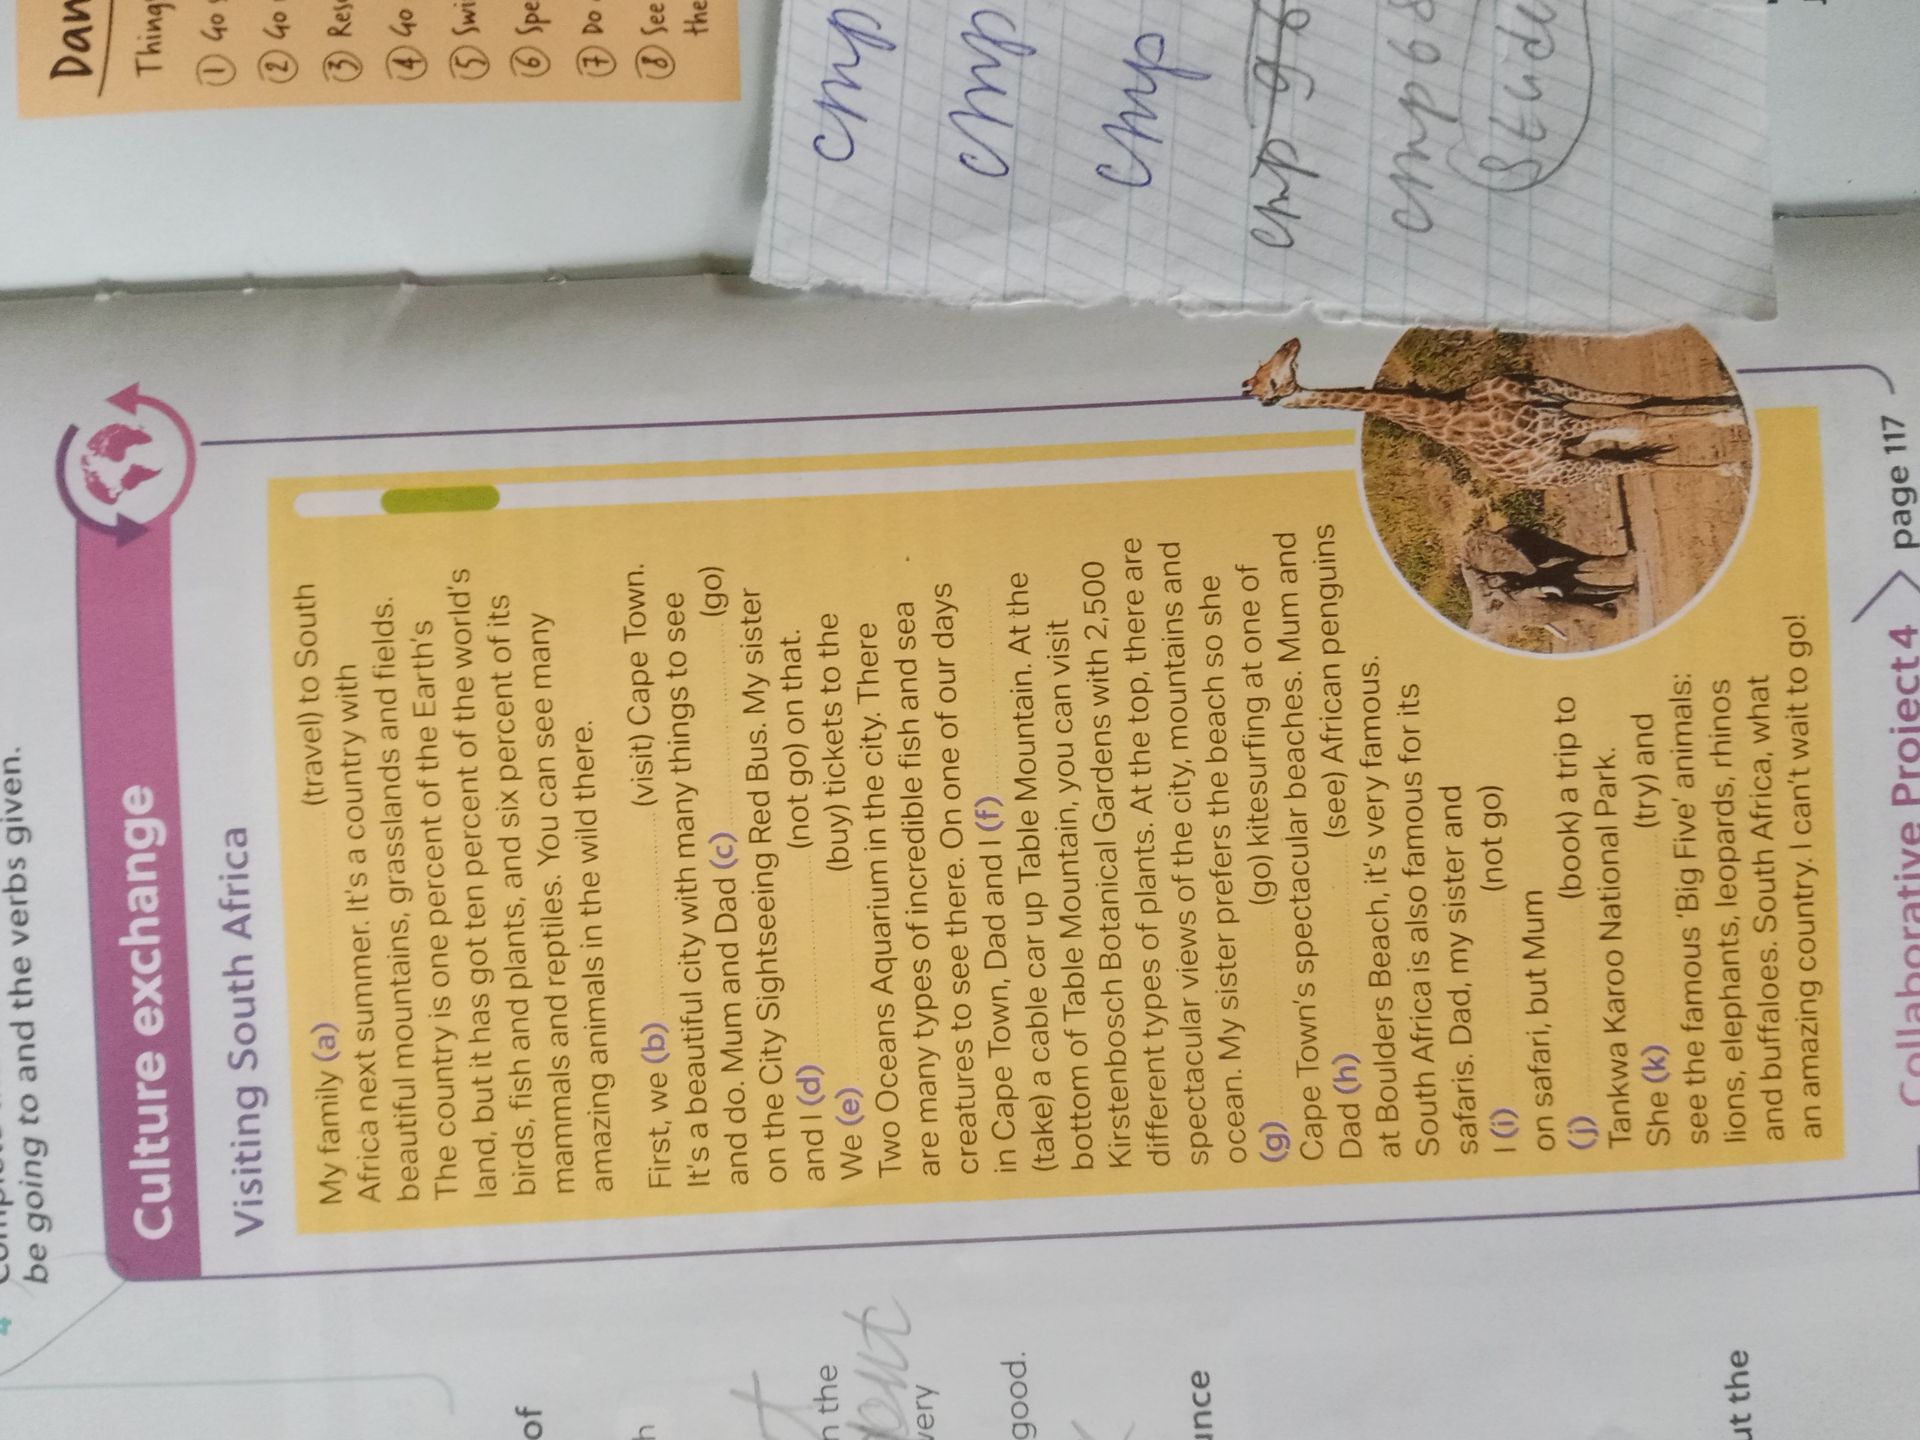 be going to and the verbs given.
Culture exchange
Visiting South Africa
My family (a) (travel) to South
Africa next summer. It's a country with
beautiful mountains, grasslands and fields.
The country is one percent of the Earth's
land, but it has got ten percent of the world's
birds, fish and plants, and six percent of its
mammals and reptiles. You can see many
amazing animals in the wild there.
First, we (b) (visit) Cape Town.
It's a beautiful city with many things to see
and do. Mum and Dad (c) (go)
on the City Sightseeing Red Bus. My sister
and I (d) (not go) on that.
We (e) (buy) tickets to the
Two Oceans Aquarium in the city. There
are many types of incredible fish and sea
creatures to see there. On one of our days
in Cape Town, Dad and I (f)
(take) a cable car up Table Mountain. At the
bottom of Table Mountain, you can visit
Kirstenbosch Botanical Gardens with 2,500
different types of plants. At the top, there are
spectacular views of the city, mountains and
ocean. My sister prefers the beach so she
(g) (go) kitesurfing at one of
Cape Town's spectacular beaches. Mum and
Dad (h) (see) African penguins
at Boulders Beach, it's very famous.
South Africa is also famous for its
safaris. Dad, my sister and
I (i) (not go)
on safari, but Mum
(j) (book) a trip to
Tankwa Karoo National Park.
She (k) (try) and
see the famous 'Big Five' animals:
lions, elephants, leopards, rhinos
and buffaloes. South Africa, what
an amazing country. I can't wait to go!
Collaborative Project 4 > page 117
of
h
n the
very
good.
unce
ut the
Dan
Thing
1 Go
2 Go
3 Res
4 Go
5 Swi
6 Spe
7 Do
8 See
the
стр
стр
стр
стр 96
стр 68
Stude